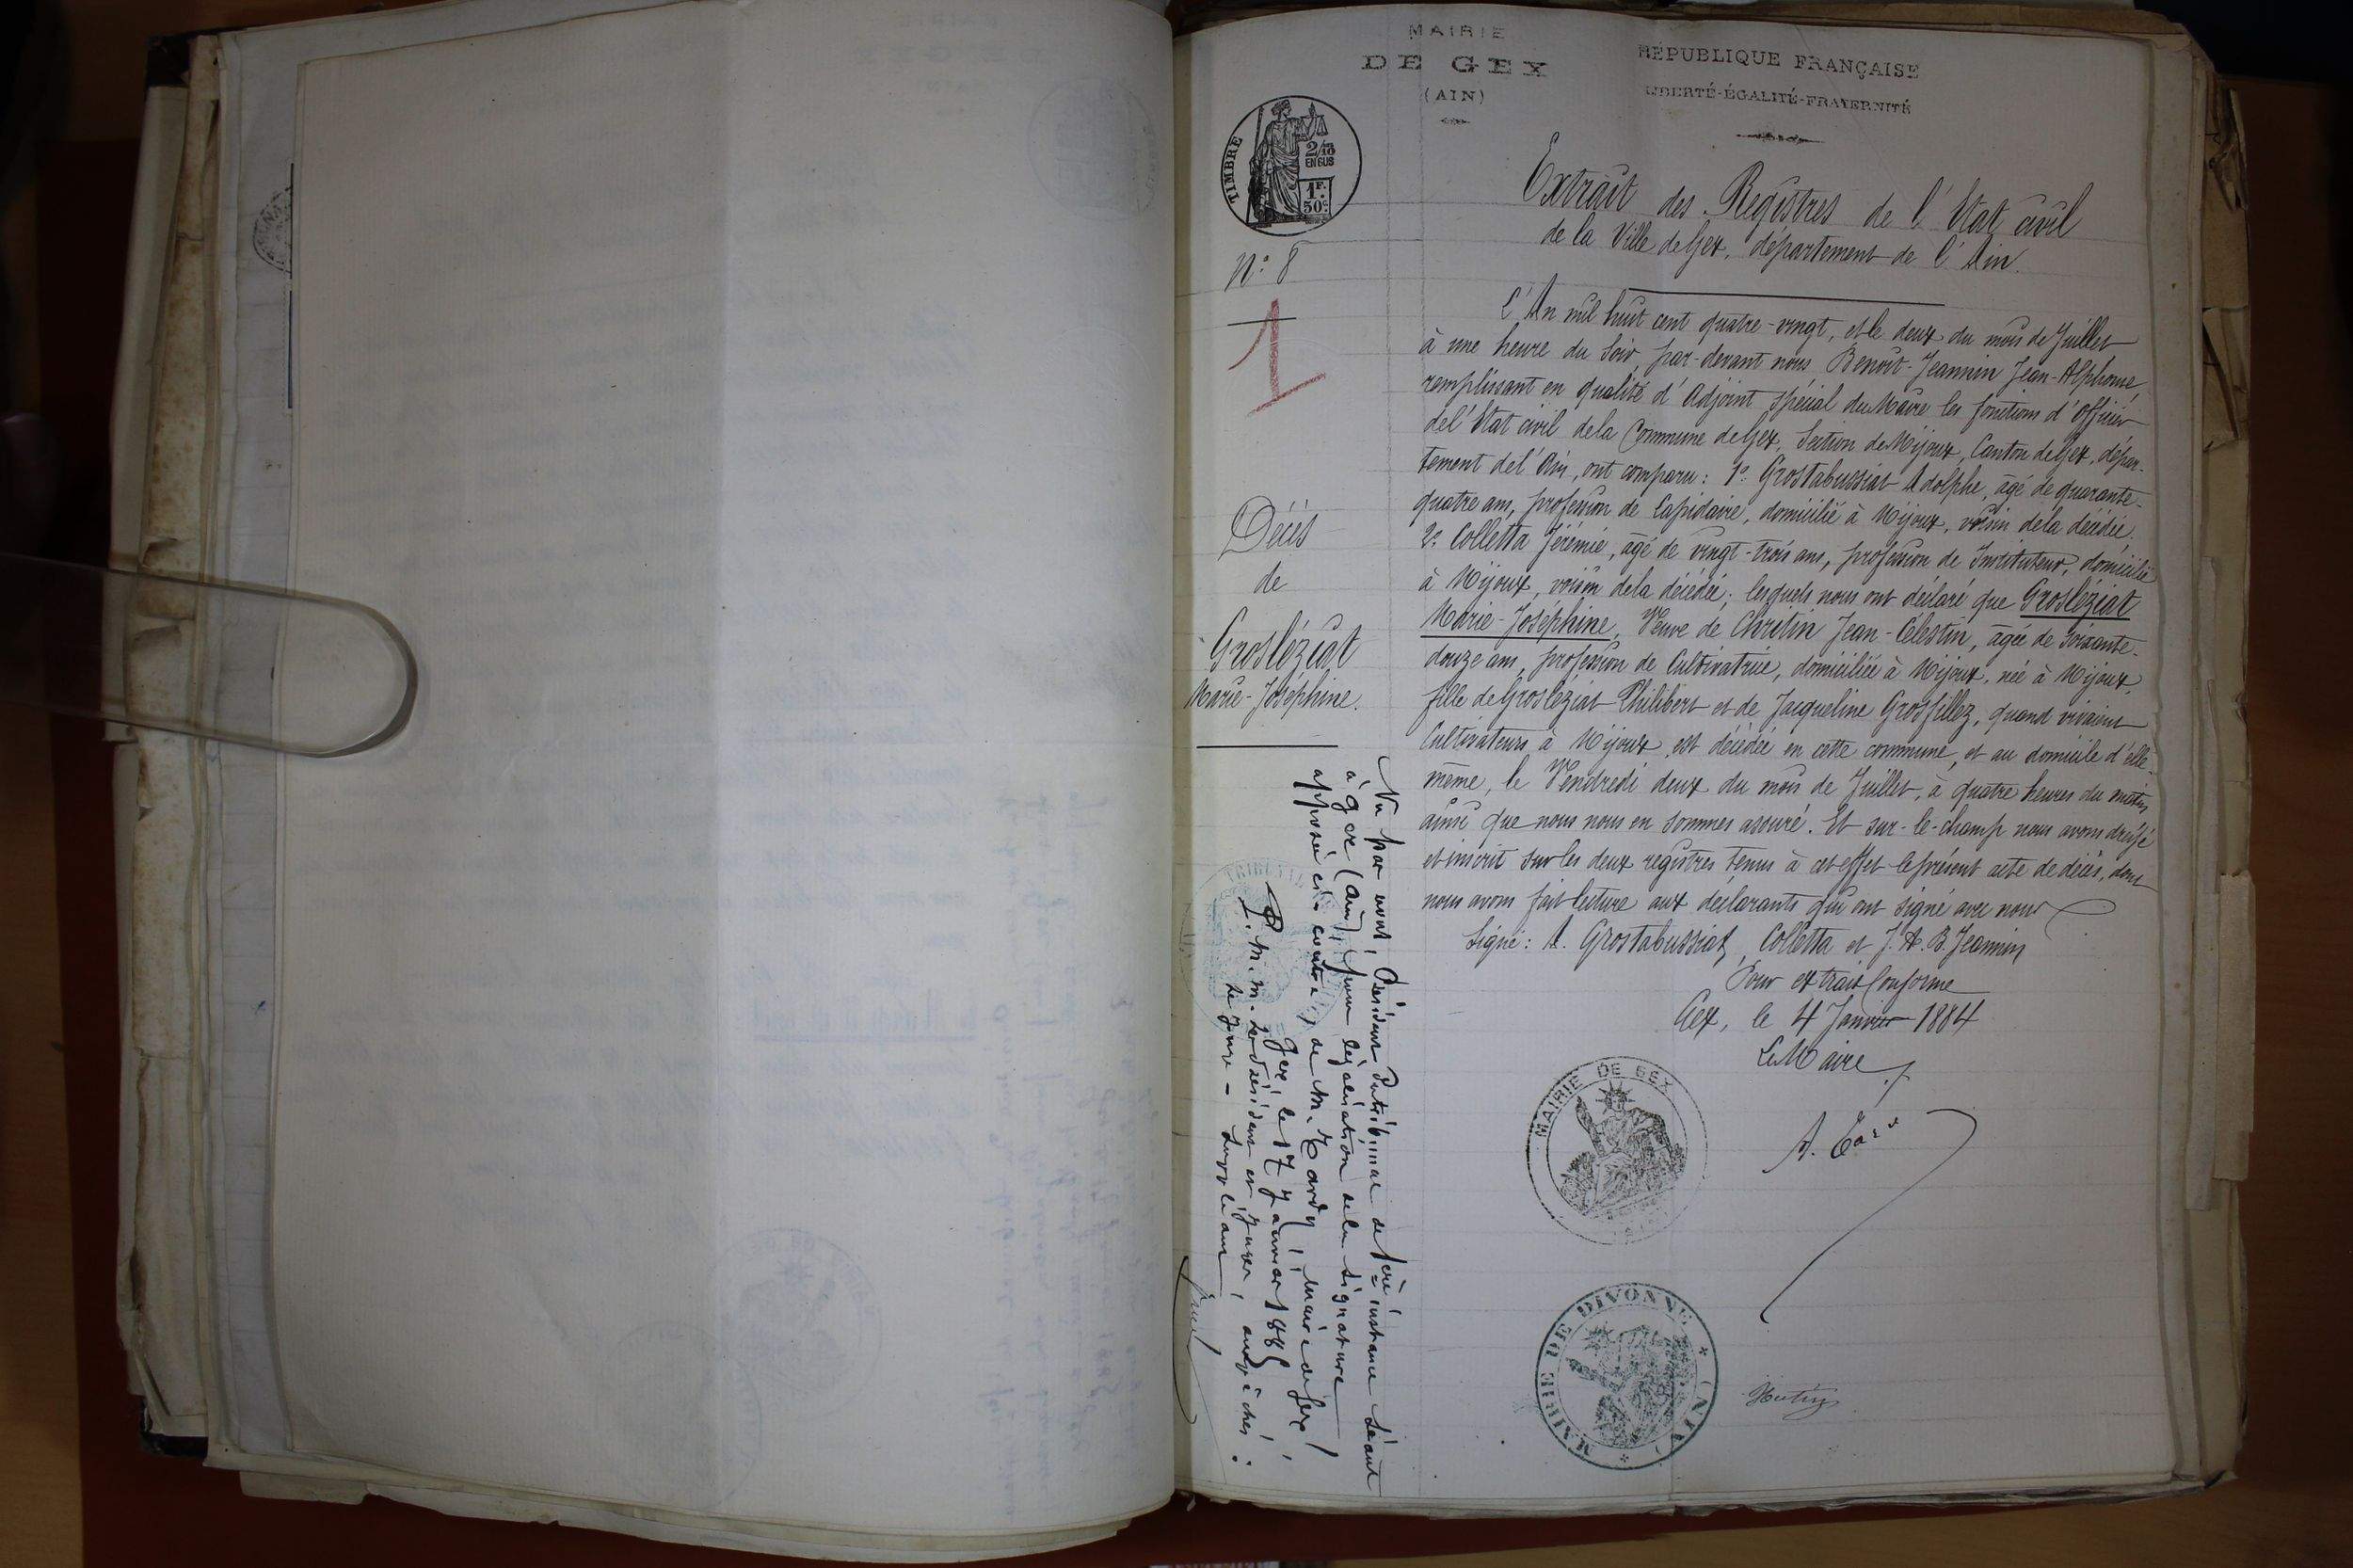 MAIRIE
DE GEX
(AIN)
RÉPUBLIQUE FRANÇAISE
LIBERTÉ-ÉGALITÉ-FRATERNITÉ
TIMBRE
2/10
EN SUS
1F.
50c.
N.° 8
1
Extrait des Registres de l'Etat civil
de la Ville de Gex, département de l'Ain.
Décès
de
Grosléziat
Marie-Joséphine.
L'An mil huit cent quatre-vingt, et le deux du mois de Juillet
à une heure du soir, par-devant nous Benoit-Jeannin Jean-Alphonse,
remplissant en qualité d'Adjoint spécial du Maire les fonctions d'officier
de l'Etat civil de la Commune de Gex, Section de Mijoux, Canton de Gex, dépar-
tement de l'Ain, ont comparu: 1.° Grostabussiat Adolphe, âgé de quarante-
quatre ans, profession de Lapidaire, domicilié à Mijoux, voisin de la décédée.
2.° Colletta Jérémie, âgé de vingt-trois ans, profession de Instituteur, domicilié
à Mijoux, voisin de la décédée; lesquels nous ont déclaré que Grosléziat
Marie-Joséphine, Veuve de Christin Jean-Célestin, âgée de soixante-
douze ans, profession de Cultivatrice, domiciliée à Mijoux, née à Mijoux,
fille de Grosléziat Philibert et de Jacqueline Grosfillez, quand vivaient
Cultivateurs à Mijoux, est décédée en cette commune, et au domicile d'elle-
même, le Vendredi deux du mois de Juillet, à quatre heures du matin
ainsi que nous nous en sommes assuré. Et sur-le-champ nous avons dressé
et inscrit sur les deux registres tenus à cet effet le présent acte de décès, dont
nous avons fait lecture aux déclarants qui ont signé avec nous
Signé: A. Grostabussiat, Colletta et J. A. B. Jeannin
Pour extrait Conforme
Gex, le 4 Janvier 1884
Le Maire
MAIRIE DE GEX
MAIRIE DE DIVONNE (AIN)
Vu par nous, Président du tribunal de 1ère instance séant
à Gex (Ain), pour légalisation de la signature
apposée ci-contre, de M. Tardy, maire de Gex,
Gex, le 17 Janvier 1885
P. M.M. le Président et Juges, empêchés:
Le Juge-Suppléant
TRIBUNAL